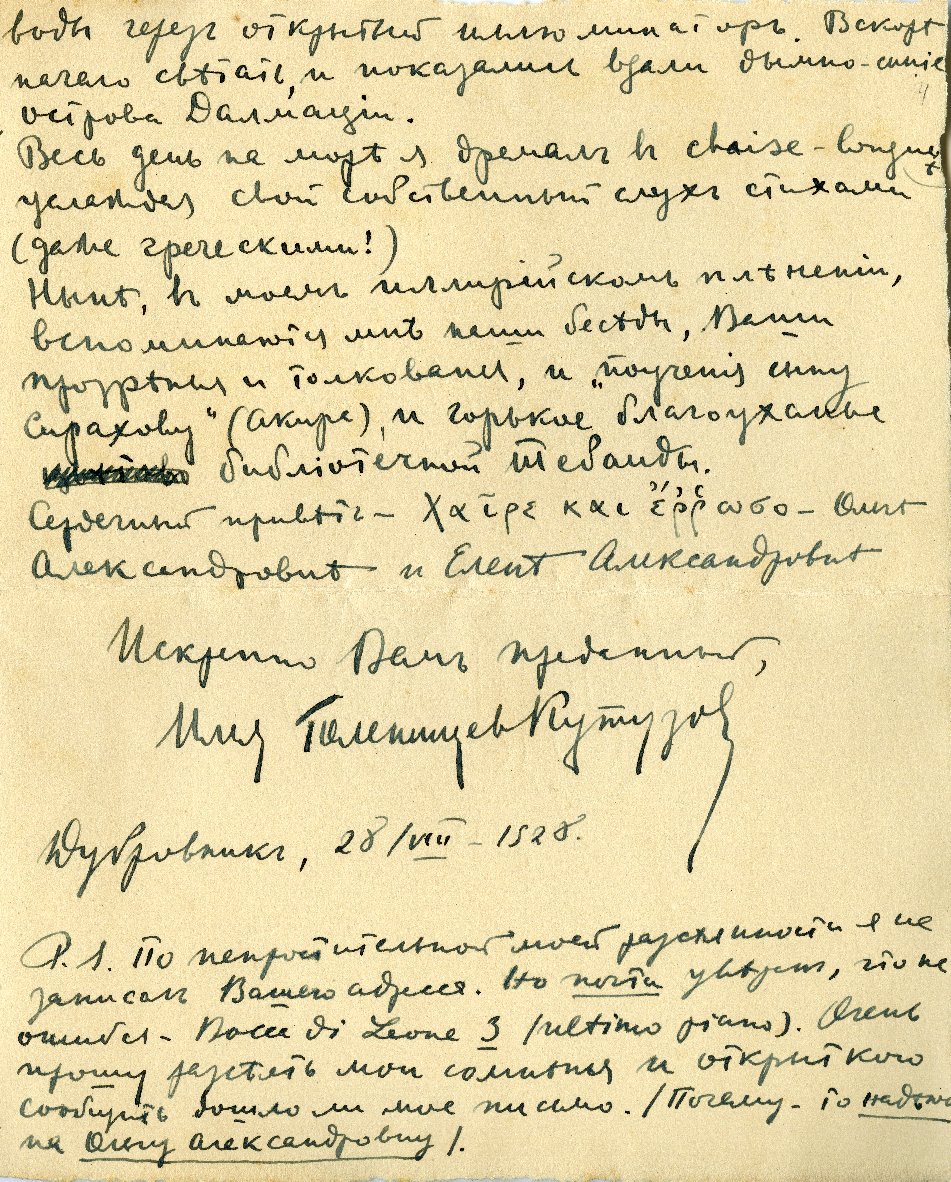 воды черезъ открытый иллюминаторъ. Вскорѣ
начало свѣтать, и показались вдали дымно-синіе
острова Далмаціи.
Весь день на морѣ я дремалъ въ chaise-longue,
услаждая свой собственный слухъ стихами
(даже греческими!)
Нынѣ, въ моемъ иллирійскомъ плѣненіи,
вспоминаются мнѣ наши бесѣды, Ваши
прозрѣнья и толкованья, и „поученія сыну
Сирахову“ (Акира), и горькое благоуханье
библіотечной Ѳебаиды.
Сердечный привѣтъ – Χαῖρε καὶ ἔρρωσο – Ольгѣ
Александровнѣ и Еленѣ Александровнѣ
Искренно Вамъ преданный,
Илья Голенищев Кутузов
Дубровникъ, 28/VIII – 1928.
P.S. По непростительной моей разсѣянности я не
записалъ Вашего адреса. Но почти увѣренъ, что не
ошибся – Bocca di Leone 3 (ultimo piano). Очень
прошу разсѣять мои сомнѣнья и открыткою
сообщить дошло ли мое письмо. (Почему-то надѣюсь
на Ольгу Александровну).